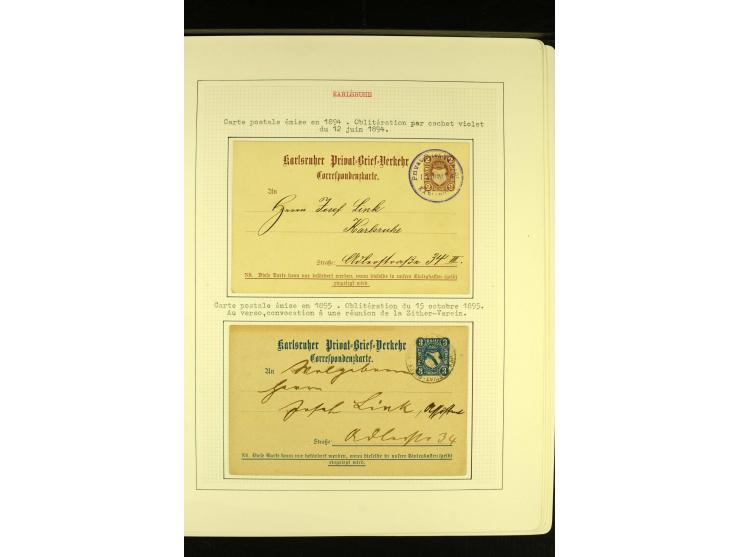 KARLSRUHE
Carte postale émise en 1894 . Oblitération par cachet violet
du 12 juin 1894.
Karlsruher Privat-Brief-Verkehr
Correspondenzkarte.
An
Herrn Josef Link
Karlsruhe
Straße: Adlerstraße 34 III.
NB. Diese Karte kann nur befördert werden, wenn dieselbe in unsere Briefkasten (gelb)
eingelegt wird.
Carte postale émise en 1895 . Oblitération du 15 octobre 1895.
Au verso,convocation à une réunion de la Zither-Verein.
Karlsruher Privat-Brief-Verkehr
Correspondenzkarte.
3 3
3 3
An Wolgeboren
Herrn
Josef Link,
Straße: Adlerstr 34
NB. Diese Karte kann nur befördert werden, wenn dieselbe in unsere Briefkasten (gelb)
eingelegt wird.